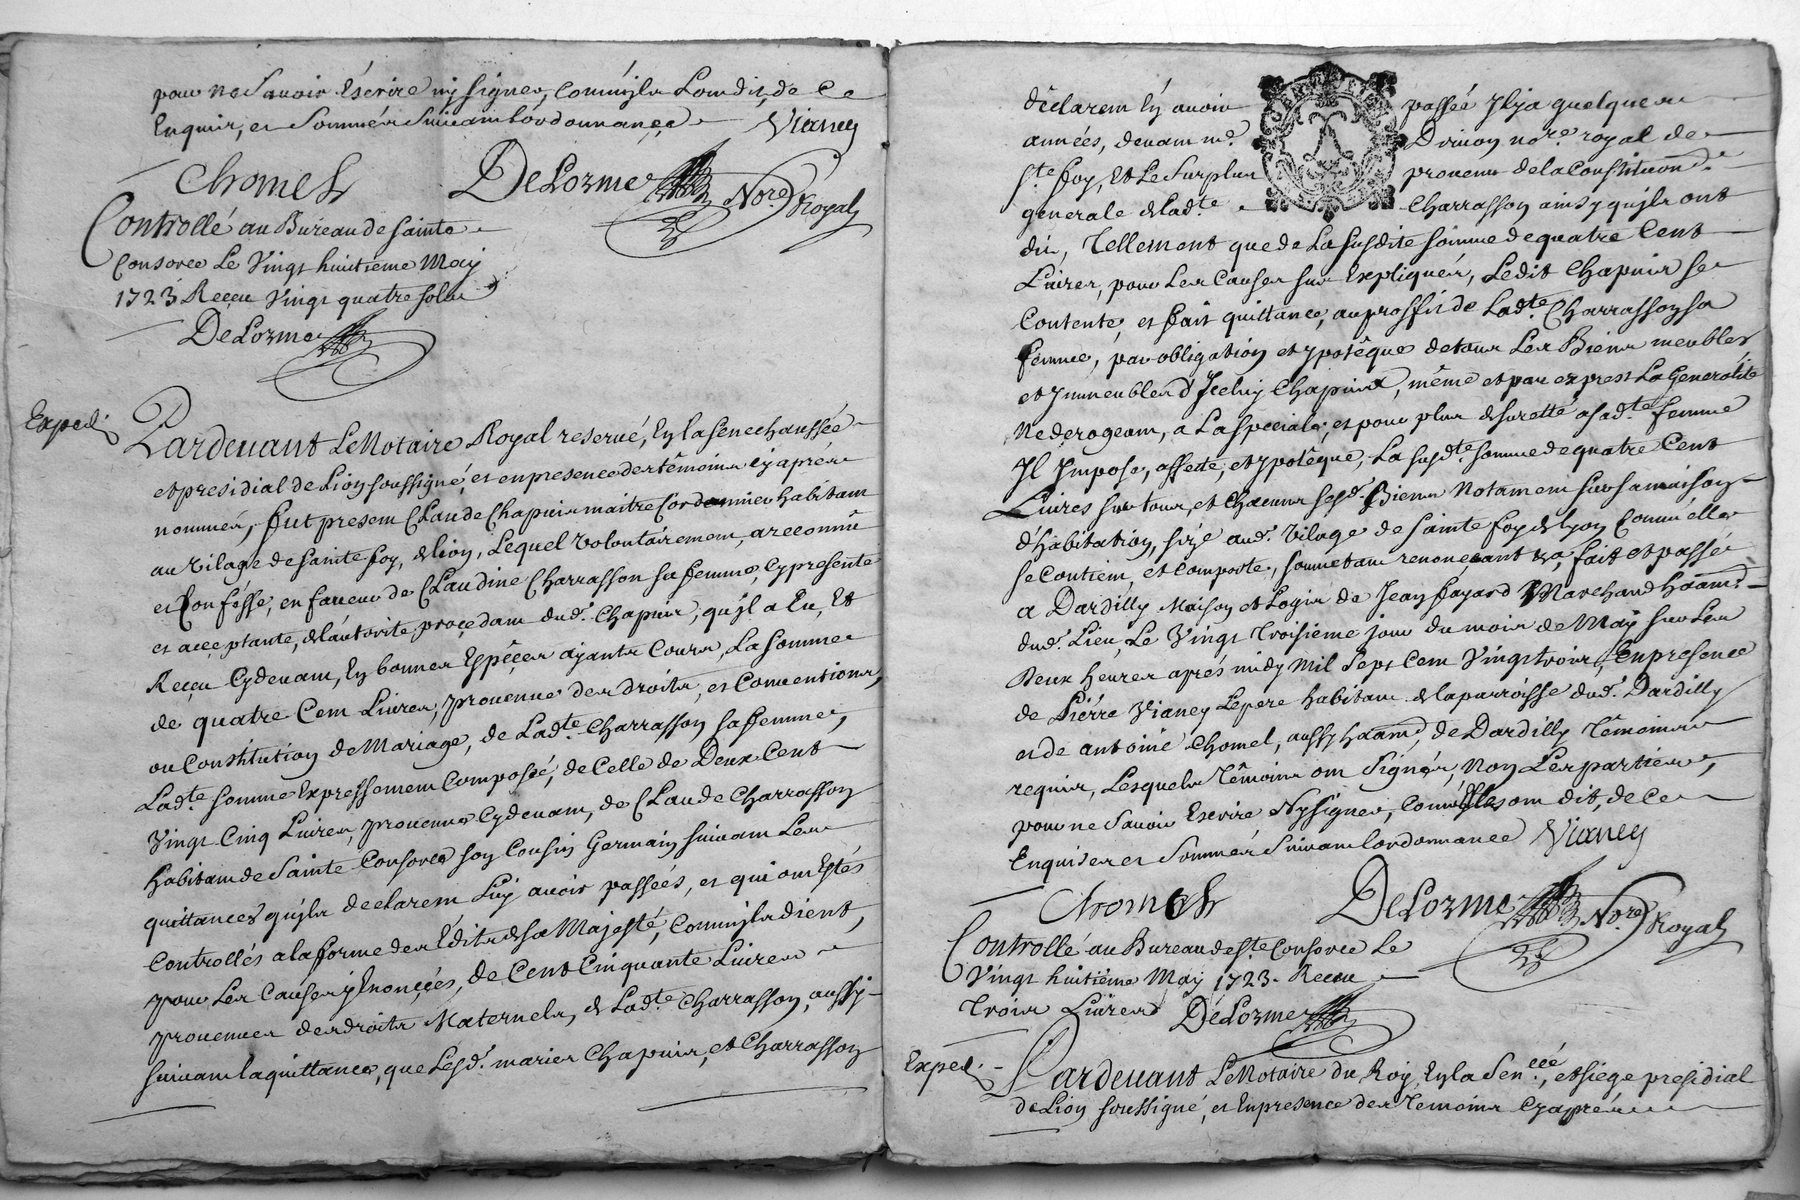 pour ne Savoir Éscrire ny signer, Comm'jls L'ont dit, de Ce
Enquis, et Sommés Suivant lordonnance Vianey
Chomel DeLorme Nore. Royal
Controllé au Bureau de Sainte
Consorce Le Vingt huitieme May
1723 Reçeu Vingt quatre sols
DeLorme
Exped
Pardevant Le Notaire Royal reservé, En la Senechaussée
et presidial de Lion soussigné, et en presence des têmoins cy aprés
nommés, fut present Claude Chapuis maitre Cordonnier habitant
au Vilage de Sainte foy, les lion, Lequel Volontairement, a reconnû
et Confésse, en faveur de Claudine Charrasson sa femme, Cy presente
et acceptante, de l'autorité, proçedant dud. Chapuis, qu'jl a Eu, Et
Reçeu Cy devant, En bonnes Espêçes ajants Cours, La somme
de quatre Cent Livres, provenue des droits, et Conventions,
ou Constitution de Mariage, de Ladte. Charrasson sa femme,
Ladte. somme Expressement Composeé, de Celle de Deux Cent
Vingt Cinq Livres, provenue Cy devant, de Claude Charrasson
habitant de Sainte Consorce son Cousin Germain suivant Les
quittances qu'jls declarent Luy avoir passeés, et qui ont Estés
Controllés a la forme des Édits de sa Majesté, Comm'jls dient,
pour Les Causes y Énonçeés, de Cent Cinquante Livres
provenues des droits Maternels, de Ladte. Charrasson, aussy
suivant la quittance, que Lesd. mariés Chapuis, et Charrasson
déclarent En avoir passeé Jl ja quelques
années, devant me. Drivon nore. royal de
Ste. foy, Et Le Surplus provenu de la Constitution
generale de Ladte. Charrasson ainsy qu'jls ont
dit, Tellement que de La susdite somme de quatre Cent
Livres, pour Les Causes sus Expliqueés, Ledit Chapuis se
Contente, et fait quittance, au proffit de Ladte. Charrasson sa
femme, par obligation et ypotêque de tous Les Biens meubles
et Jmmeubles d'Jceluy Chapuis, même et par expres La Generalité
Ne derogeant, a La speciale, et pour plus de sureté a sadte. femme
Jl Jmpose, affecte, et ypotêque, La susdte. somme de quatre Cent
Livres sur tous, et Chacuns sesd. Biens Notament sur sa maison
d'habitation, sizé aud. Vilage de Sainte foy les lyon Comm'elle
se Contient, et Comporte, soumettant renonçant &a, fait et passé
a Dardilly Maison et Logis de Jean fayard Marchand haant.
dud. Lieu, Le Vingt Troisieme jour du mois de Maÿ sur Les
Deux heures aprés midy Mil Sept Cent Vingt trois, En presence
de Piérre Vianey Le pere habitant de la parroisse dud. Dardilly
et de antoine Chomel, aussy haant, de Dardilly Têmoins
requis, Lesquels Têmoins ont Signés, Non Les parties,
pour ne Savoir Escrire Ny signer, Comm'elles ont dit, de Ce
Enquises et Sommés Suivant lordonnance Vianey
Chomel DeLorme Nore. Royal
Controllé au Bureau de Ste. Consorce Le
Vingt huitiéme May 1723. Receu
Trois Livres DeLorme
Exped.
Pardevant Le Notaire du Roy, En la Sen.ceé, et siege presidial
de Lion soussigné, et En presence des Temoins Cy aprés